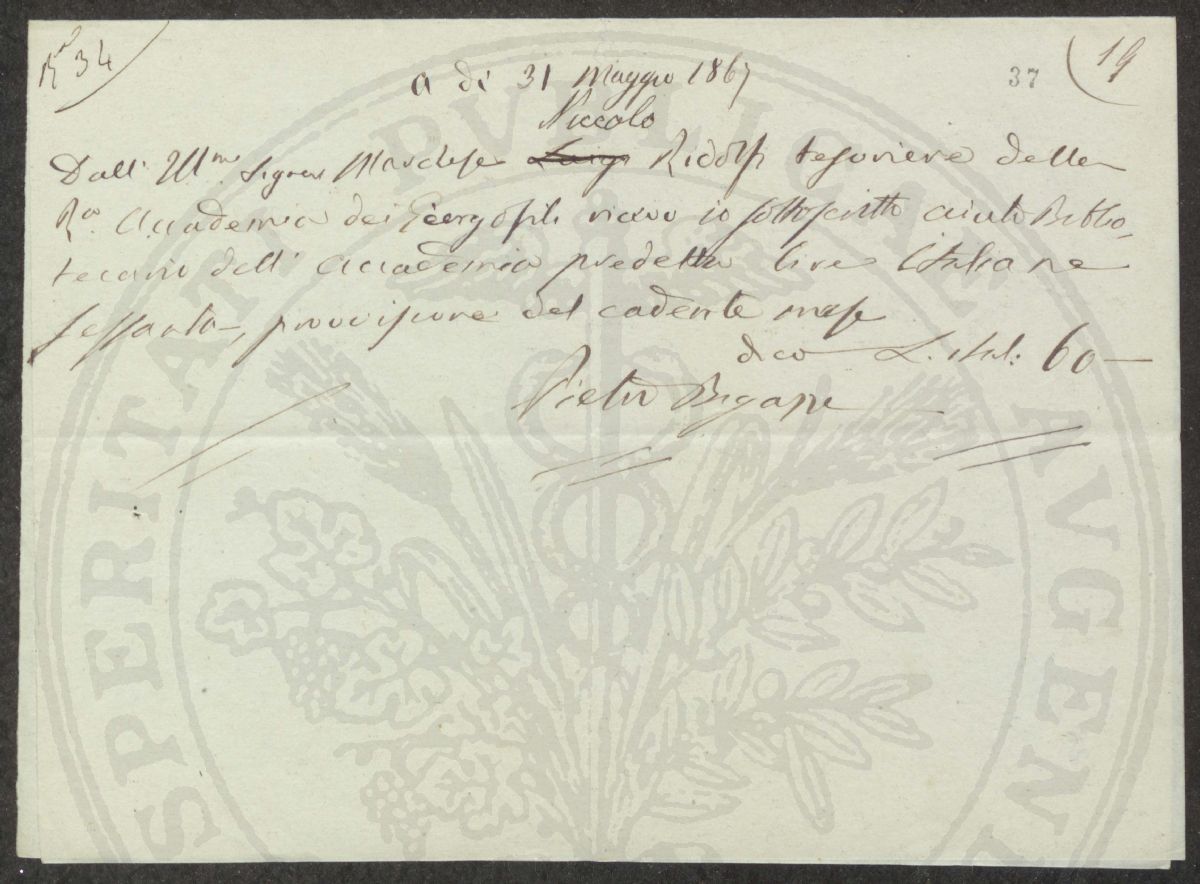 N° 34
19
37
a dì 31 Maggio 1867
Niccolo
Dall' Ill.mo Signor Marchese Luigi Ridolfi tesoriere della
R.a Accademia dei Georgofili ricevo io sottoscritto aiuto Biblio-
tecario dell' Accademia predetta lire Italiane
sessanta, provvisione del cadente mese
dico L. Ital: 60 —
Pietro Bigazzi
PROSPERITATI PVBLICAE AVGENDAE